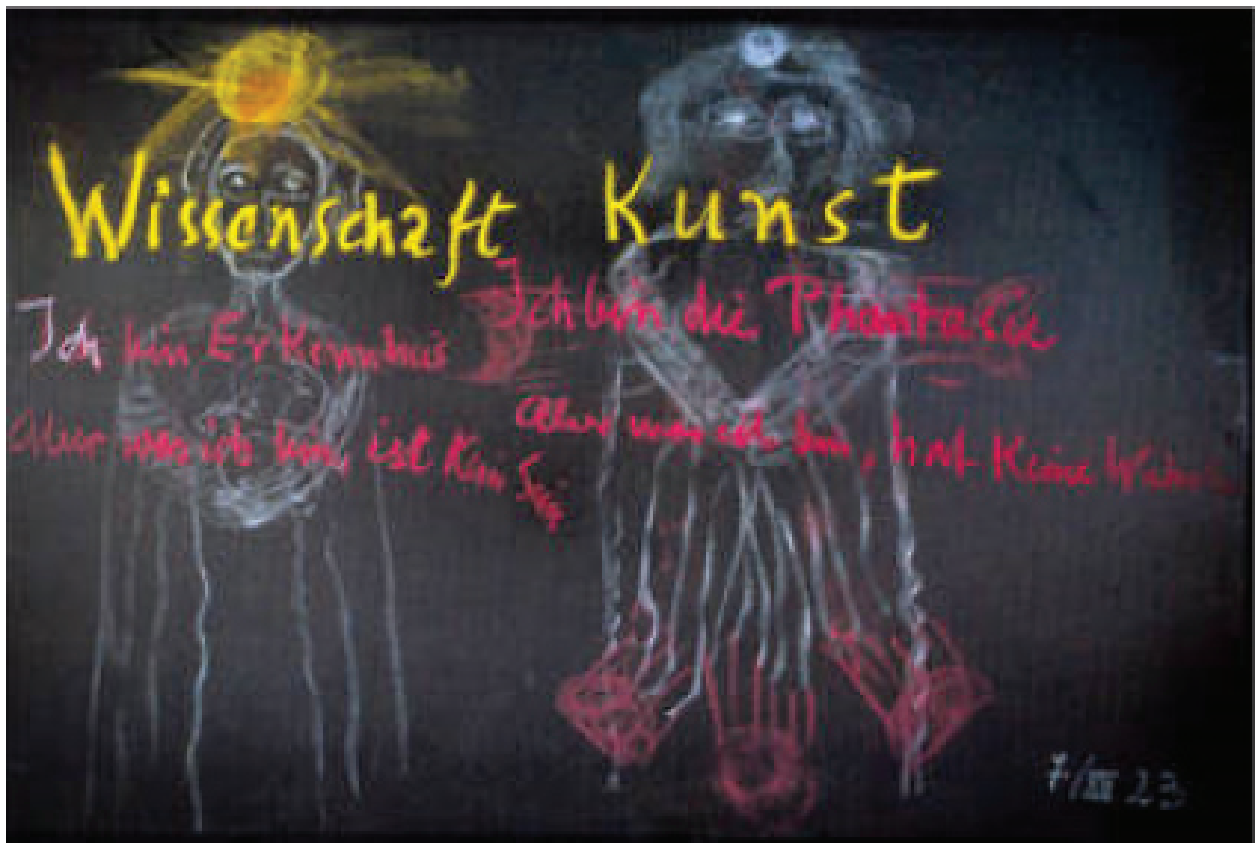 Wissenschaft Kunst
Ich bin Erkenntnis
Aber was ich bin, ist Kein Sein
Ich bin die Phantasie
Aber was ich bin, hat Keine
7/III 23